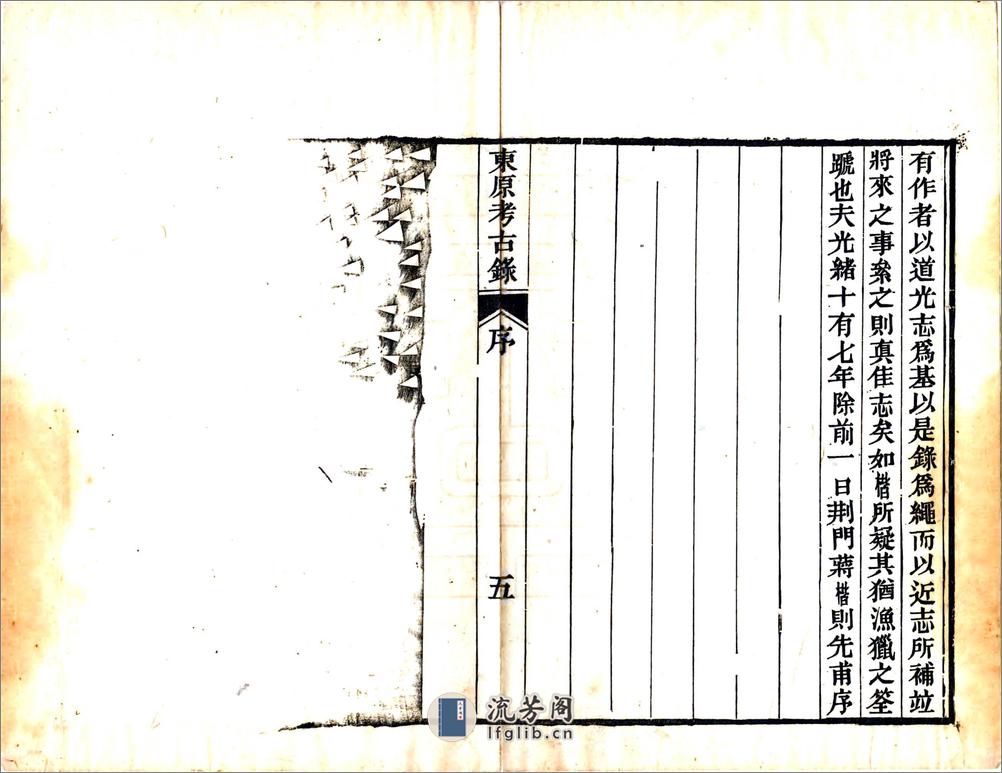 有作者以道光志爲基以是錄爲繩而以近志所補竝
將來之事叅之則眞佳志矣如楷所疑其猶漁獵之筌
蹏也夫光緒十有七年除前一日荆門蔣楷則先甫序
東原考古錄
序
五
流芳阁
lfglib.cn